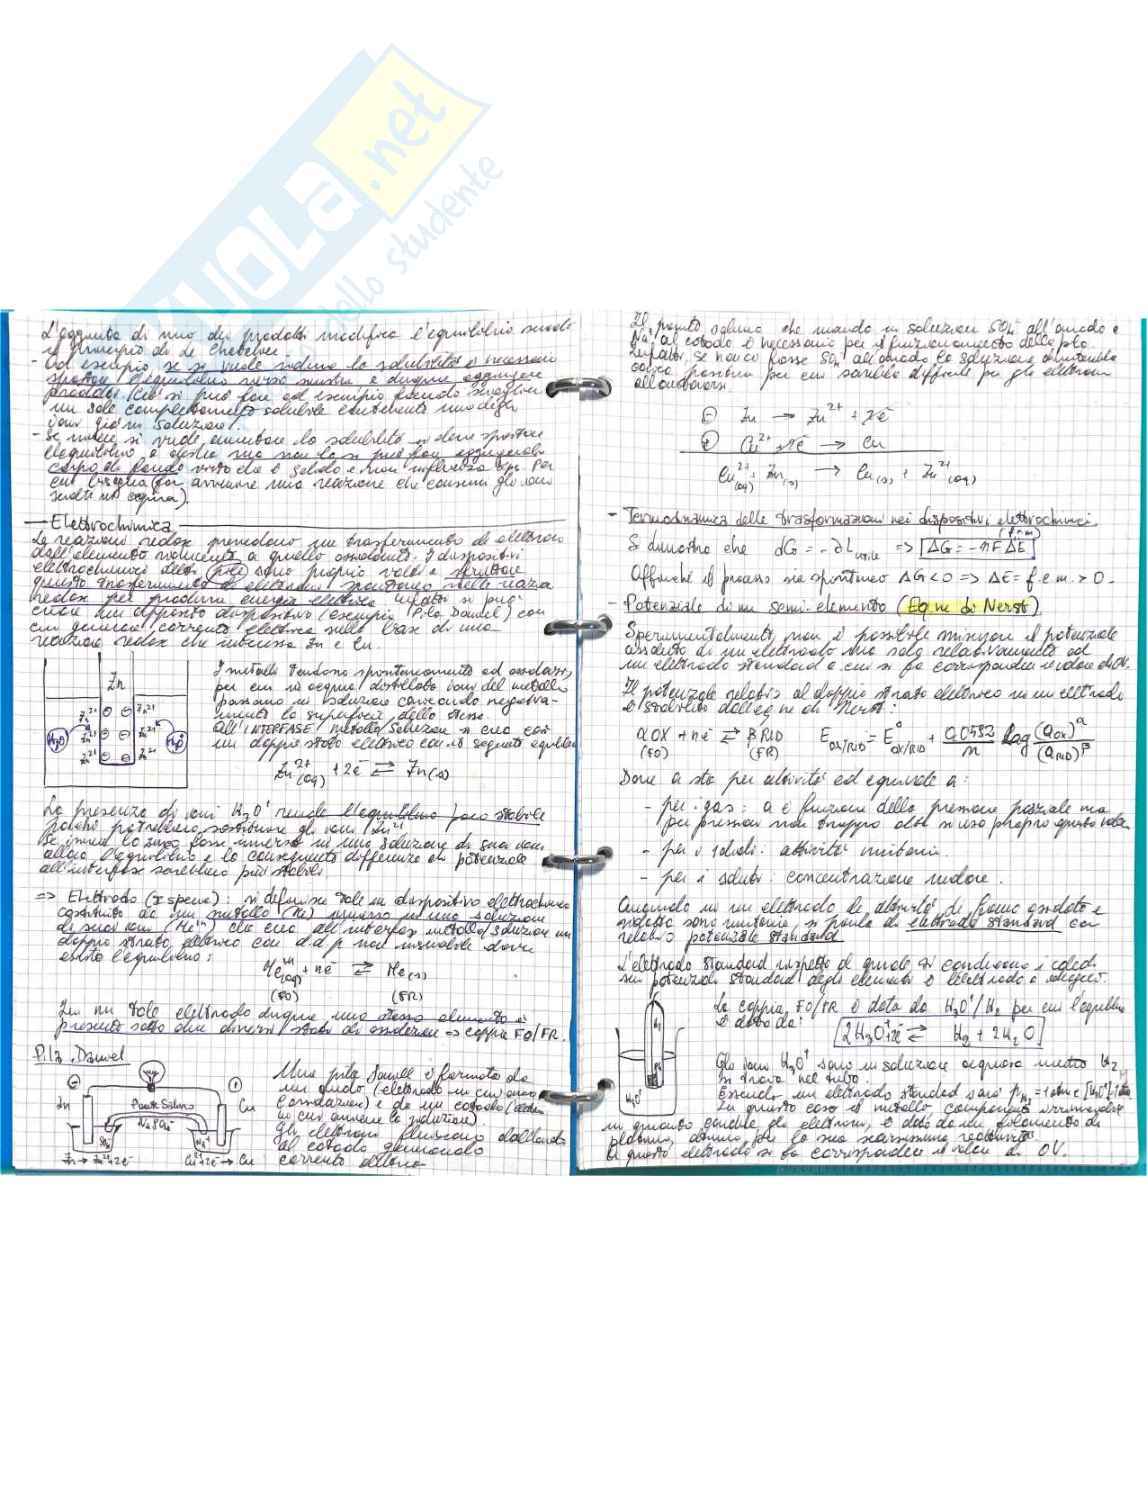 SKUOLA.net
dello studente
L'aggiunta di uno dei prodotti modifica l'equilibrio secondo
il principio di Le Chatelier
- Ad esempio, se si vuole ridurre la solubilità è necessario
spostare l'equilibrio verso sinistra e dunque aggiungere
prodotti. Ciò si può fare ad esempio facendo sciogliere
un sale completamente solubile contenente uno degli
ioni già in soluzione.
- Se invece si vuole aumentare la solubilità si deve spostare
l'equilibrio a destra ma non lo si può fare aggiungendo
corpo di fondo visto che è solido e non influenza Kps. Per
cui bisogna far avvenire una reazione che consumi gli ioni
Elettrochimica
Le reazioni redox prevedono un trasferimento di elettroni
dall'elemento riducente a quello ossidante. I dispositivi
elettrochimici detti (pile) sono proprio volti a sfruttare
questo trasferimento di elettroni spontaneo nelle reazioni
redox per produrre energia elettrica. Infatti si può
creare un apposito dispositivo (esempio Pila Daniel) con
cui generare corrente elettrica sulla base di una
reazione redox che interessa Zn e Cu.
Zn
Zn²⁺ ⊖ ⊖ Zn²⁺
H₃O⁺ Zn²⁺ ⊖ ⊖ Zn²⁺ H₃O⁺
Zn²⁺ ⊖ ⊖ Zn²⁺
I metalli tendono spontaneamente ad ossidarsi,
per cui in acqua distillata ioni del metallo
passano in soluzione caricando negativa-
mente la superficie dello stesso.
All'INTERFASE metallo/soluzione si crea così
un doppio strato elettrico con il seguente equilibrio
Zn²⁺(aq) + 2e⁻ ⇄ Zn(s)
La presenza di ioni H₃O⁺ rende l'equilibrio poco stabile
poiché potrebbero sostituire gli ioni Zn²⁺
Se invece lo zinco fosse immerso in una soluzione di suoi ioni
allora l'equilibrio e la conseguente differenza di potenziale
all'interfase sarebbero più stabili.
=> Elettrodo (I specie): si definisce tale un dispositivo elettrochimico
costituito da un metallo (Me) immerso in una soluzione
di suoi ioni (Meⁿ⁺) che crea all'interfase metallo/soluzione un
doppio strato elettrico con d.d.p non misurabile dove
esiste l'equilibrio:
Meⁿ⁺(aq) + ne⁻ ⇄ Me(s)
(FO) (FR)
In un tale elettrodo dunque uno stesso elemento è
presente sotto due diversi stati di ossidazione => coppia FO/FR.
Pila Daniel
⊖ ⊕
Zn Ponte Salino Cu
Na₂SO₄
SO₄²⁻ Na⁺
Zn → Zn²⁺+2e⁻ Cu²⁺+2e⁻ → Cu
Una pila Daniell è formata da
un anodo (elettrodo in cui avviene
l'ossidazione) e da un catodo (elettrodo
in cui avviene la riduzione).
Gli elettroni fluiscono dall'anodo
al catodo generando
corrente elettrica
Il ponte salino che manda in soluzione SO₄²⁻ all'anodo e
Na⁺ al catodo è necessario per il funzionamento della pila.
Infatti, se non ci fosse SO₄²⁻ all'anodo la soluzione diventerebbe
carica positiva per cui sarebbe difficile per gli elettroni
allontanarsi.
⊖ Zn → Zn²⁺ + 2e⁻
⊕ Cu²⁺ + 2e⁻ → Cu
Cu²⁺(aq) + Zn(s) → Cu(s) + Zn²⁺(aq)
- Termodinamica delle trasformazioni nei dispositivi elettrochimici
(f.e.m)
Si dimostra che dG = -∂L utile => ΔG = -nFΔE
Affinché il processo sia spontaneo ΔG<0 => ΔE = f.e.m. > 0.
- Potenziale di un semi-elemento (Eq.ne di Nerst)
Sperimentalmente, non è possibile misurare il potenziale
assoluto di un elettrodo ma solo relativamente ad
un elettrodo standard a cui si fa corrispondere il valore di 0V.
Il potenziale relativo al doppio strato elettrico in un elettrodo
è stabilito dall'eq.ne di Nerst:
αOX + ne⁻ ⇄ βRID E OX/RID = E° OX/RID + 0,0592/n log (a OX)^α/(a RID)^β
(FO) (FR)
Dove a sta per attività ed equivale a:
- per i gas: a è funzione della pressione parziale ma
per pressioni non troppo alte si usa proprio questo valore.
- per i solidi: attività unitaria.
- per i soluti: concentrazione molare.
Quando in un elettrodo le attività di forma ossidata e
ridotta sono unitarie, si parla di elettrodo standard con
relativo potenziale standard
L'elettrodo standard rispetto al quale si conducono i calcoli
sui potenziali standard degli elementi è l'elettrodo a idrogeno.
H₂
H₃O⁺
La coppia FO/FR è data da H₃O⁺/H₂ per cui l'equilibrio
è dato da:
2H₃O⁺+2e⁻ ⇄ H₂ + 2H₂O
Gli ioni H₃O⁺ sono in soluzione acquosa mentre H₂
si trova nel tubo.
Essendo un elettrodo standard sarà pH₂ = 1 atm e [H₃O⁺]=1M
In questo caso il metallo, componente irrinunciabile
in quanto conduce gli elettroni, è dato da un filamento di
platino, ottimo per la sua scarsissima reattività.
A questo elettrodo si fa corrispondere il valore di 0V.